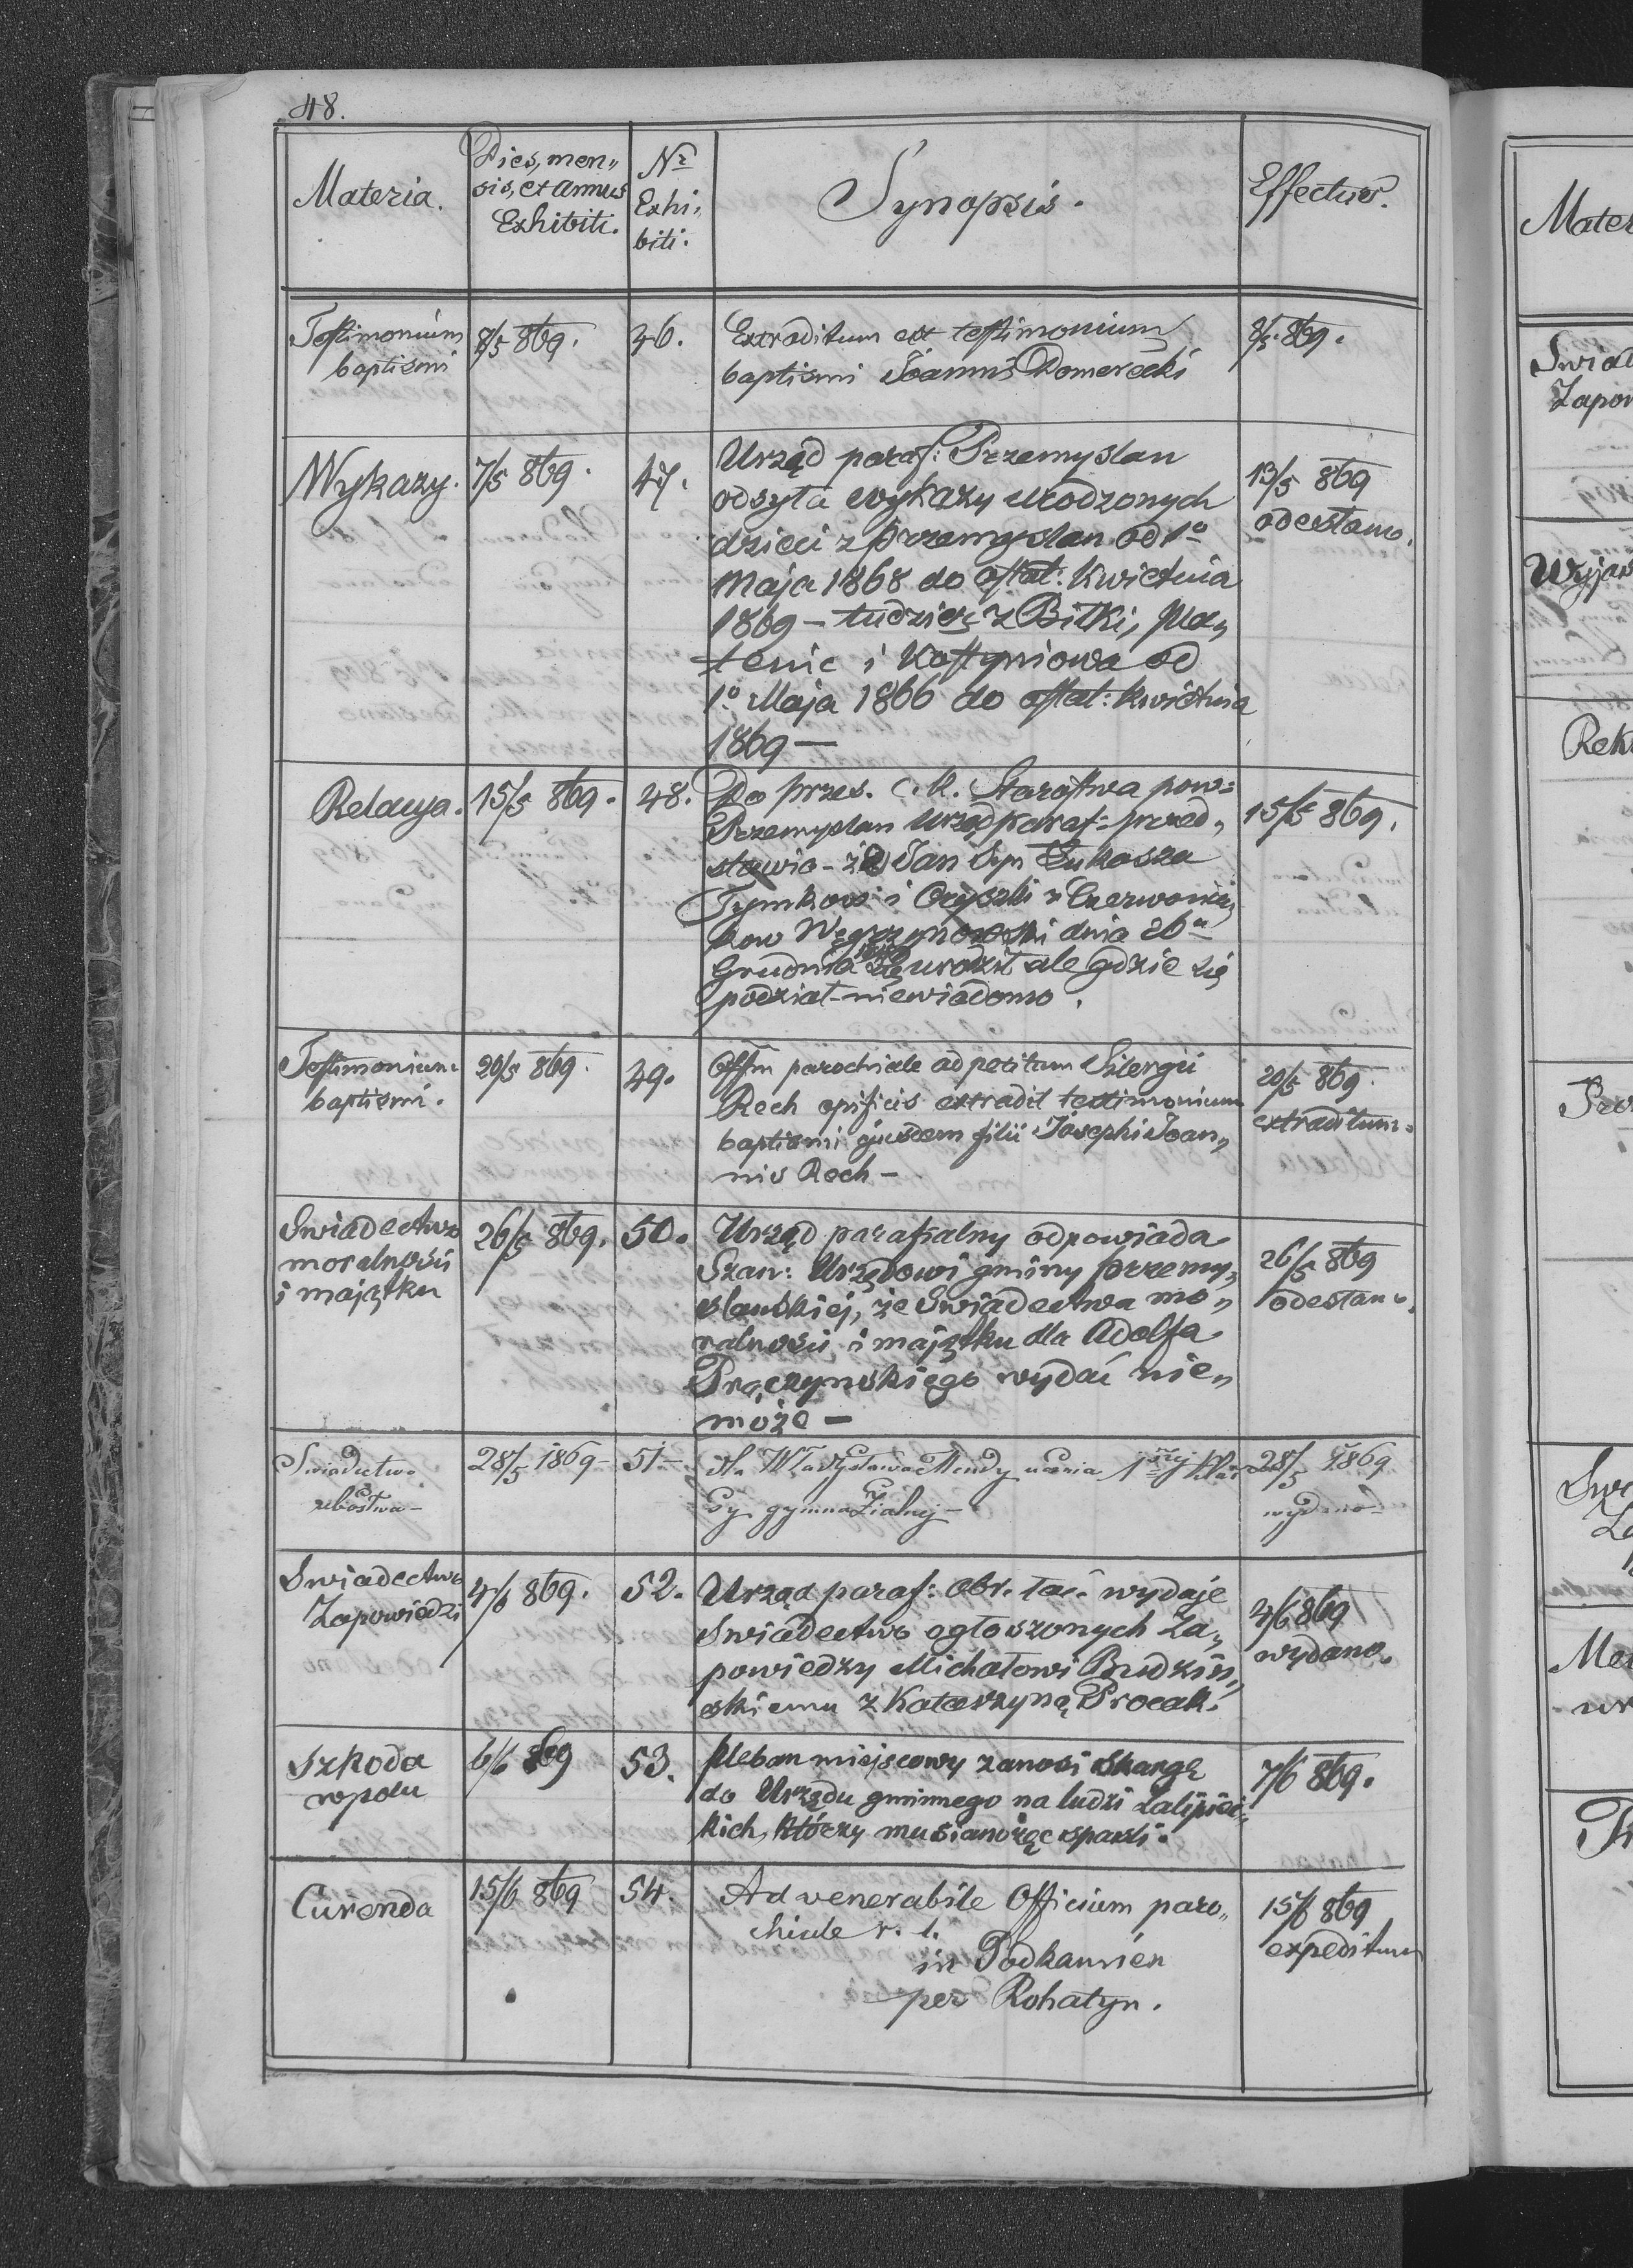 48.
Materia.
Dies, men„
sis, et annus
Exhibiti.
Nr
Exhi„
biti.
Synopsis.
Effectus.
Testimonium
baptismi
7/5 869.
46.
Extraditum est testimonium
baptismi Joannis Domerecki
8/5 869.
Wykazy.
7/5 869.
47.
Urząd paraf: Przemyslan
odsyła wykazy urodzonych
dzieci z Przemyslan od 1o
Maja 1868 do ostat: Kwietnia
1869 – tudzież z Bitki, Ple„
tenic i Kostyniowa od
1o Maja 1866 do ostat: kwietnia
1869 —
13/5 869
odesłano.
Relacya.
15/5 869.
48.
Do przes. C. K. Starostwa pow:
Przemyslan Urząd paraf: przed„
stawia – że Jan syn Łukasza
Tymkow i Oryszki z Czerwonia„
kow Węgrzynowski dnia 26o
Grudnia urodził ale gdzie się
podział – niewiadomo.
15/5 869.
Testimonium
baptismi.
20/5 869.
49.
Offm parochiale ad petitum Silergii
Rech opificis extradit testimonium
baptismi ejusdem filii Josephi Joan„
nis Rech –
20/5 869.
extraditum.
Swiadectwo
moralnosci
i majątku
26/5 869.
50.
Urząd parafialny odpowiada
Szan: Urzędowi gminy przemy„
slanskiej, że swiadectwa mo„
ralnosci i majątku dla Adolfa
Prączynskiego wydać nie„
może –
26/5 869
odesłano.
Swiadectwo
ubóstwa –
28/5 1869 –
51 –
dla Władysława Mendy ucznia 1szej klas
sy gymnazialnej –
28/5 1869
wydano
Swiadectwo
Zapowiedzi
4/6 869.
52.
Urząd paraf: obr. łać. wydaje
swiadectwo ogłoszonych Za„
powiedzy Michałowi Budziń„
skiemu z Katarzyną Procak.
4/6 869
wydano.
Szkoda
wpolu
6/6 869
53.
Pleban miejscowy zanosi skargę
do Urzędu gminnego na ludzi zalipiec„
kich, którzy mu sianożęc spasli.
7/6 869.
Curenda
15/6 869
54.
Ad venerabile Officium paro„
chiale r. l.
in Podkamień
per Rohatyn.
15/6 869
expeditum
Mater
Swiad
Zapow
Wyjas
Rek
Swi
Za
Me